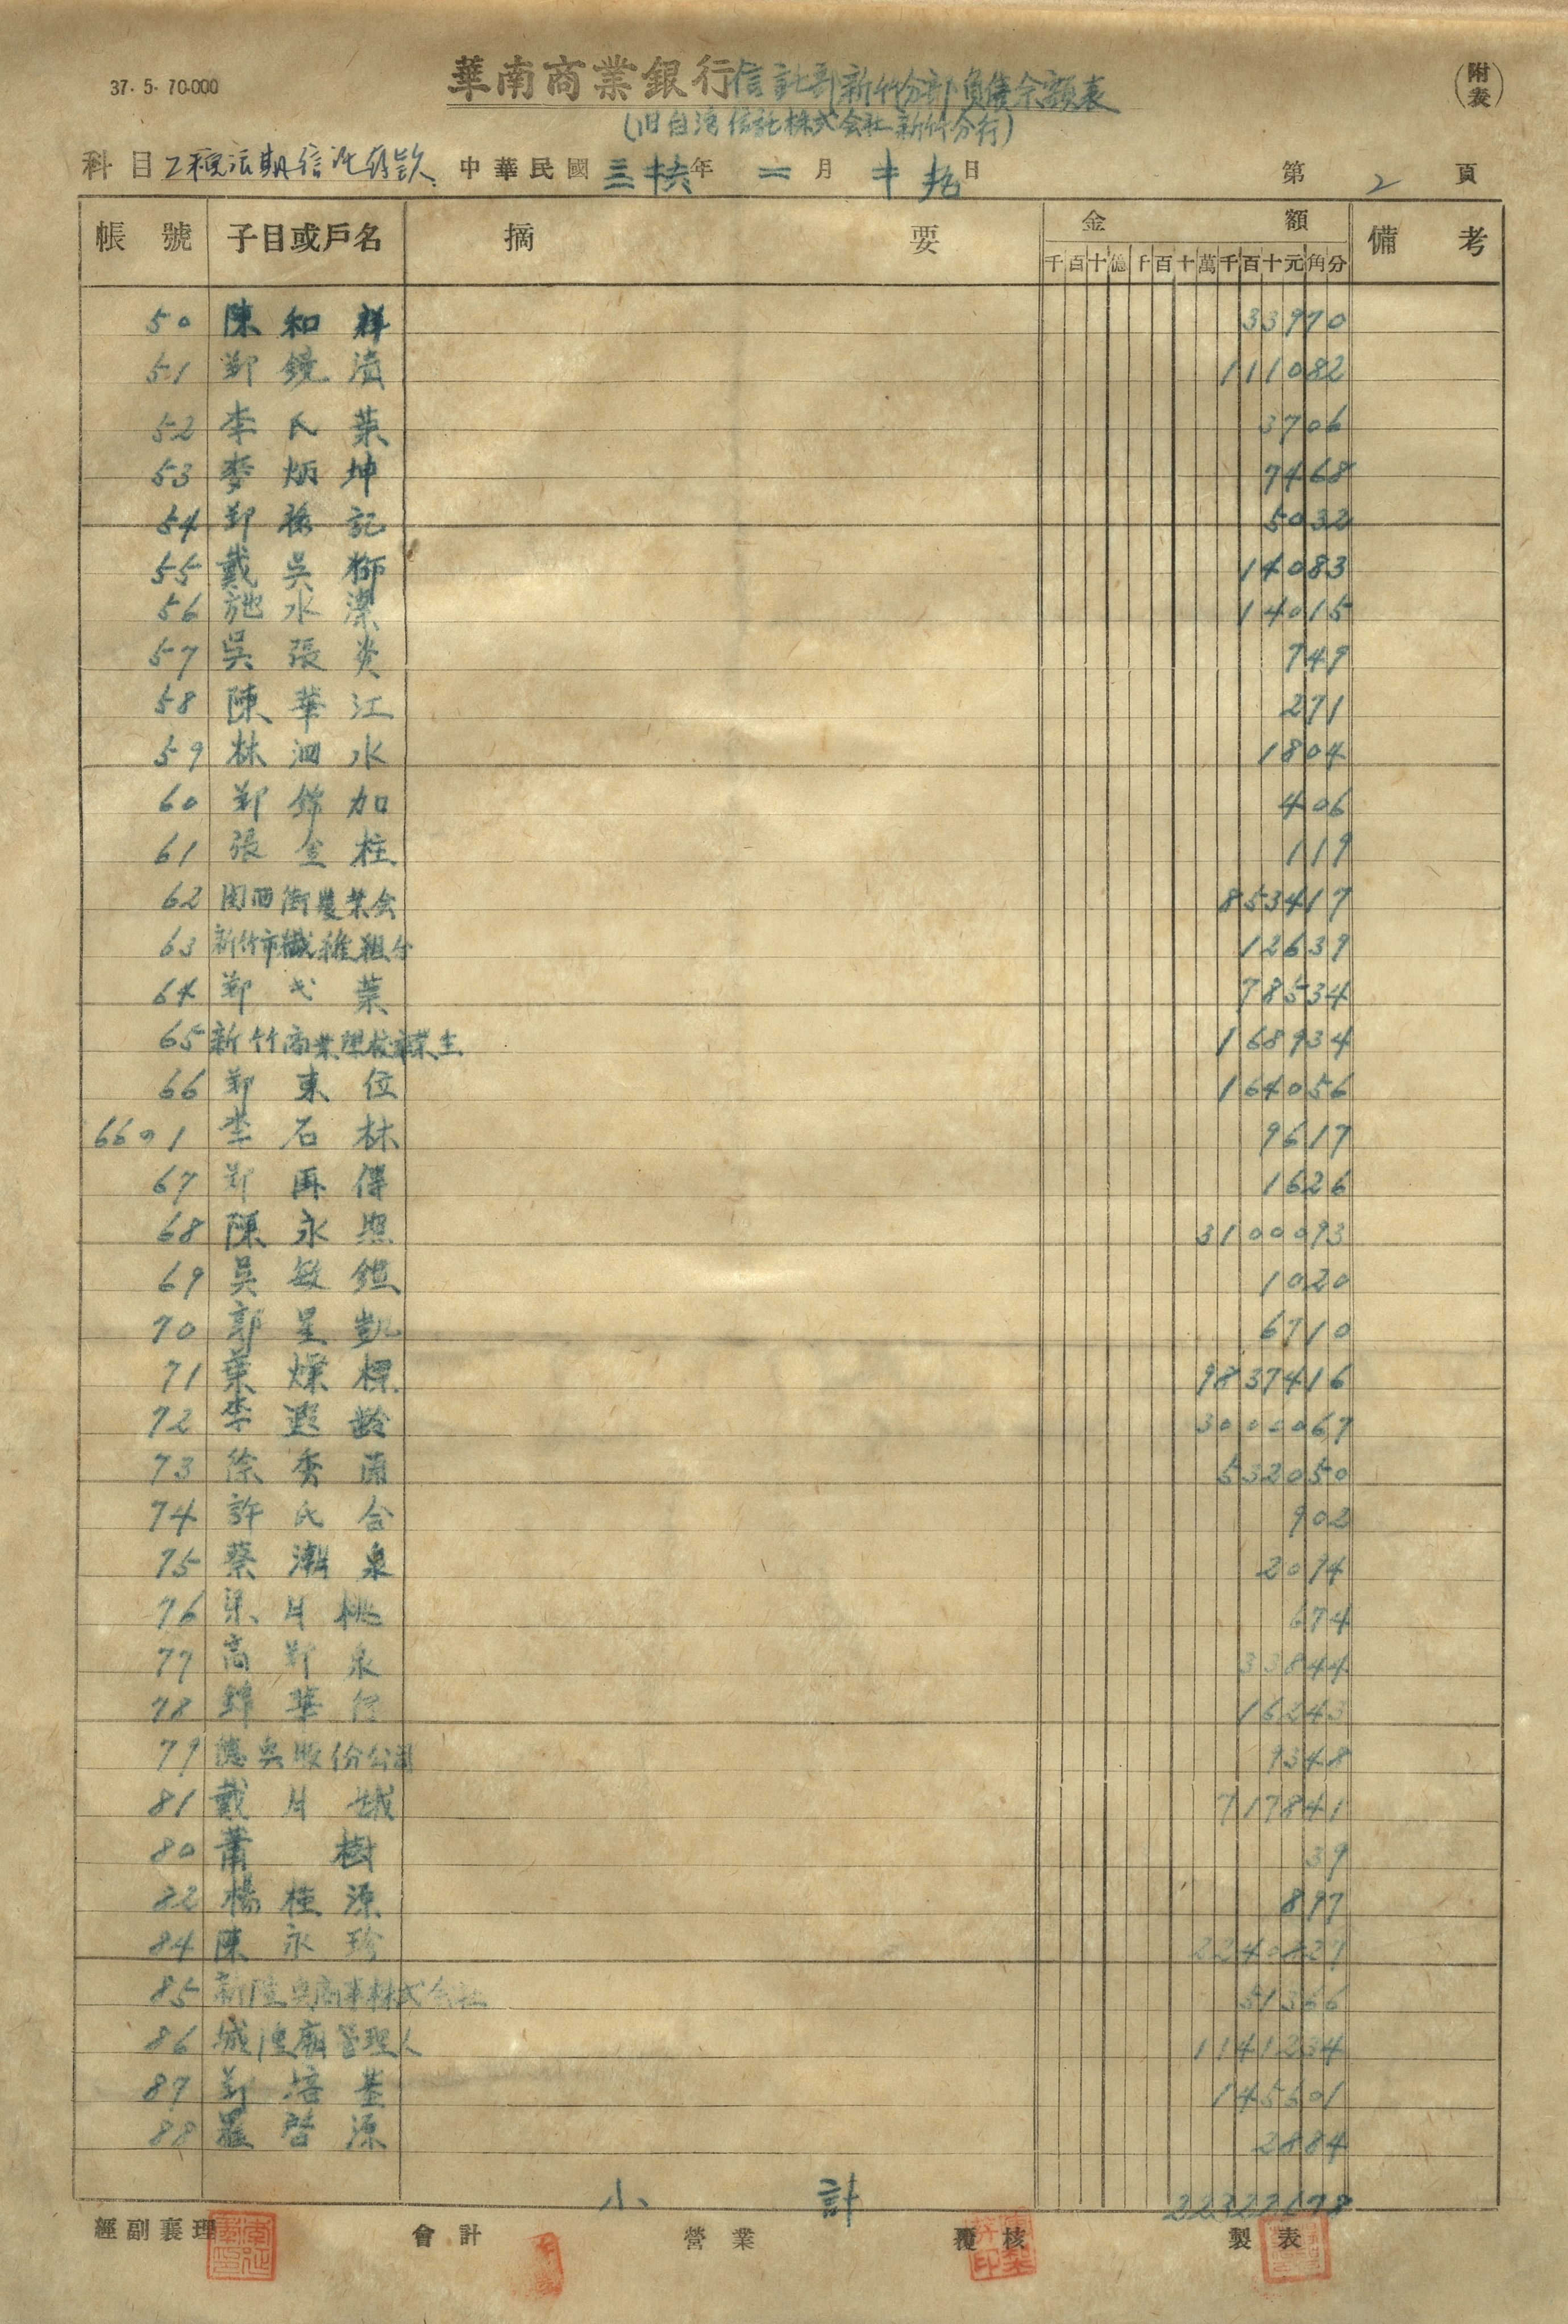 37.5.70.000
華南商業銀行信託部新竹分部負債余額表
(附表)
(旧台湾信託株式会社新竹分行)
科目 乙種活期信託存款 中華民國三十六年二月十九日 第2頁
帳號 子目或戶名 摘要 金額 備考
千百十億千百十萬千百十元角分
50 陳和祥 33970
51 鄭鏡濱 111082
52 李氏葉 3706
53 麥炳坤 7468
54 鄭 記 5032
55 戴吳獅 14083
56 施水潔 14015
57 吳張炎 749
58 陳華江 271
59 林泗水 1804
60 鄭錦加 406
61 張金柱 119
62 関西街農業会 853417
63 新竹市纖維組合 12639
64 鄭氏葉 78534
65 新竹商業學校卒業生 168934
66 鄭東位 164056
66の1 李石林 9617
67 鄭再得 1626
68 陳永照 3100093
69 吳敏鎧 1020
70 郭呈凱 6710
71 葉燦標 9837416
72 李遐齡 3000067
73 徐秀蘭 532050
74 許氏合 902
75 蔡潮泉 2074
76 梁月桃 674
77 高鄭泉 33844
78 錦華行 16243
79 德興股份公司 9348
81 戴月娥 717841
80 蕭樹 39
82 楊桂源 897
84 陳永珍
85 新隆興商事株式会社 51366
86 城隍廟管理人 1141234
87 鄭培基 145501
88 羅啓源 2884
小計 22322178
經副襄理 會計 營業 覆核 製表